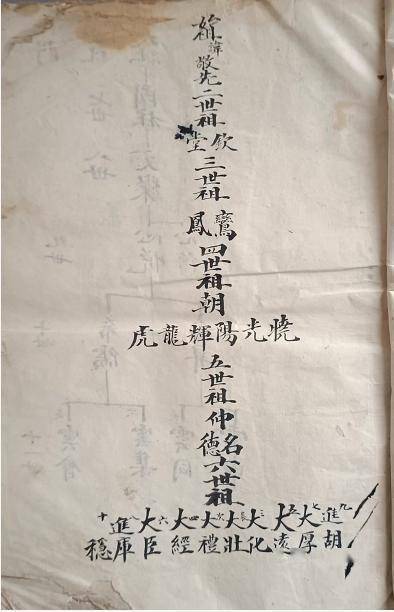 諱敬先
二世祖
欽堂
三世祖
鸞鳳
四世祖
朝
曉光陽輝龍虎
五世祖
仲
名德
六世祖
九進胡
七大厚
五大
三大化
長大壯
次大禮
四大經
六大臣
八進庫
十穩